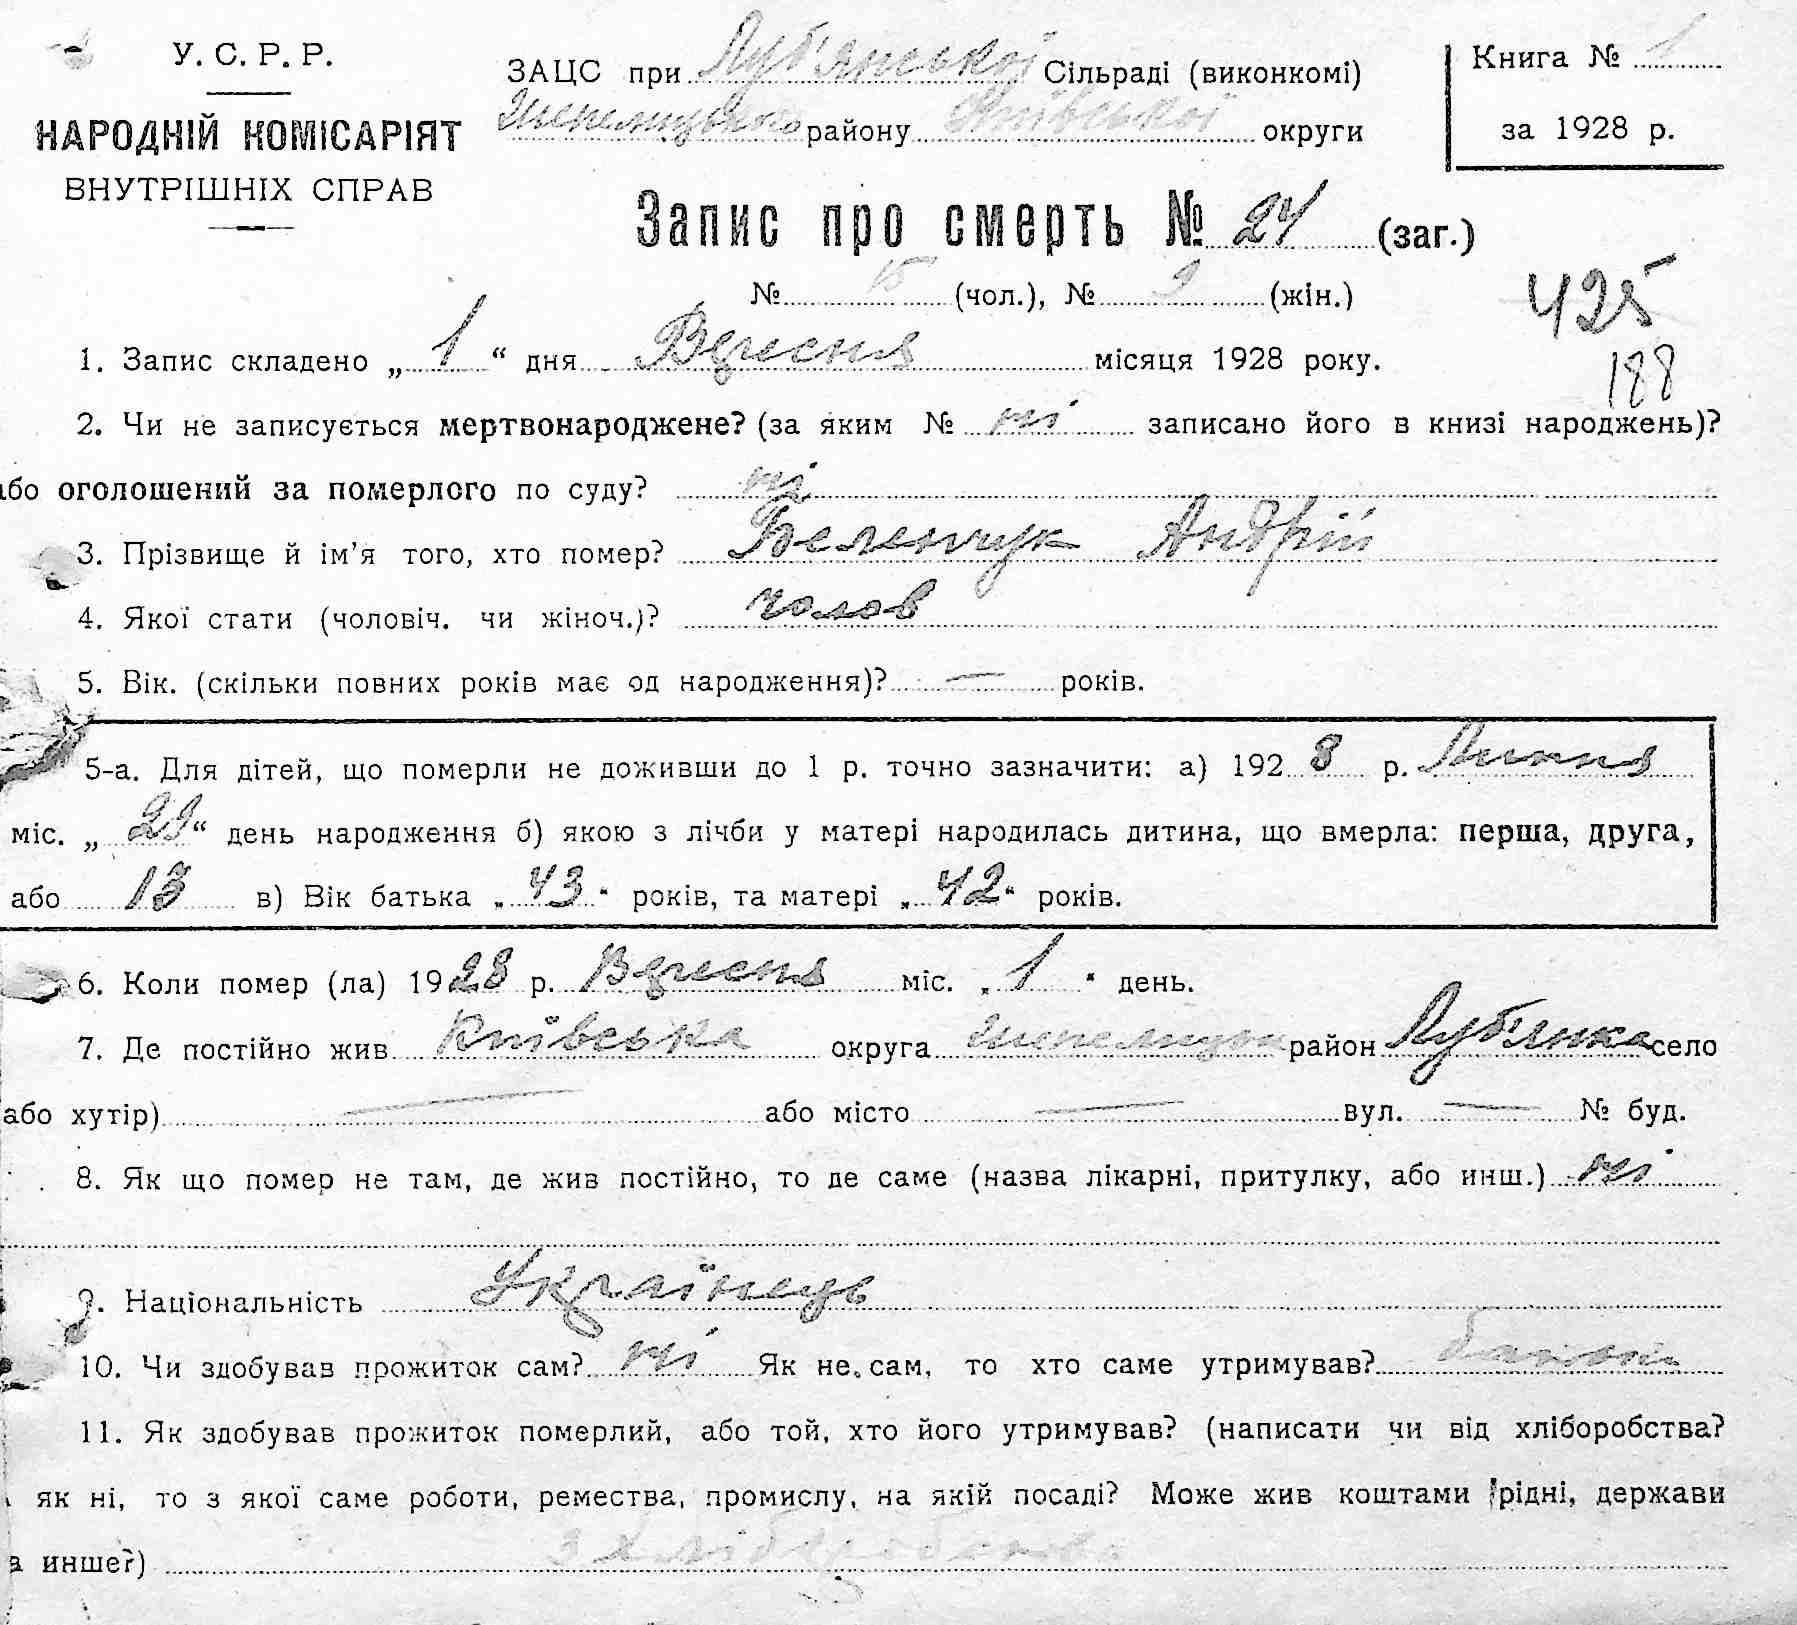 У. С. Р. Р.
НАРОДНІЙ КОМІСАРІЯТ
ВНУТРІШНІХ СПРАВ
ЗАЦС при Луб'янської Сільраді (виконкомі)
району Київської округи
Книга № 1
за 1928 р.
Запис про смерть № 24 (заг.)
№ 15 (чол.), № 9 (жін.)
425
188
1. Запис складено „ 1 “ дня Вересня місяця 1928 року.
2. Чи не записується мертвонароджене? (за яким № ні записано його в книзі народжень)?
або оголошений за померлого по суду? ні
3. Прізвище й ім’я того, хто помер? Беленчук Андрій
4. Якої стати (чоловіч. чи жіноч.)? чолов
5. Вік. (скільки повних років має од народження)? — років.
5-а. Для дітей, що померли не доживши до 1 р. точно зазначити: а) 192 8 р. Липня
міс. „ 29 “ день народження б) якою з лічби у матері народилась дитина, що вмерла: перша, друга,
або 13 в) Вік батька „ 43 “ років, та матері „ 42 “ років.
6. Коли помер (ла) 1928 р. Вересня міс. „ 1 “ день.
7. Де постійно жив Київська округа район Луб'янка село
або хутір) — або місто — вул. — № буд.
8. Як що помер не там, де жив постійно, то де саме (назва лікарні, притулку, або инш.) ні
9. Національність Українець
10. Чи здобував прожиток сам? ні Як не сам, то хто саме утримував? батьки
11. Як здобував прожиток померлий, або той, хто його утримував? (написати чи від хліборобства?
як ні, то з якої саме роботи, ремества, промислу, на якій посаді? Може жив коштами рідні, держави
а инше?) з хліборобства